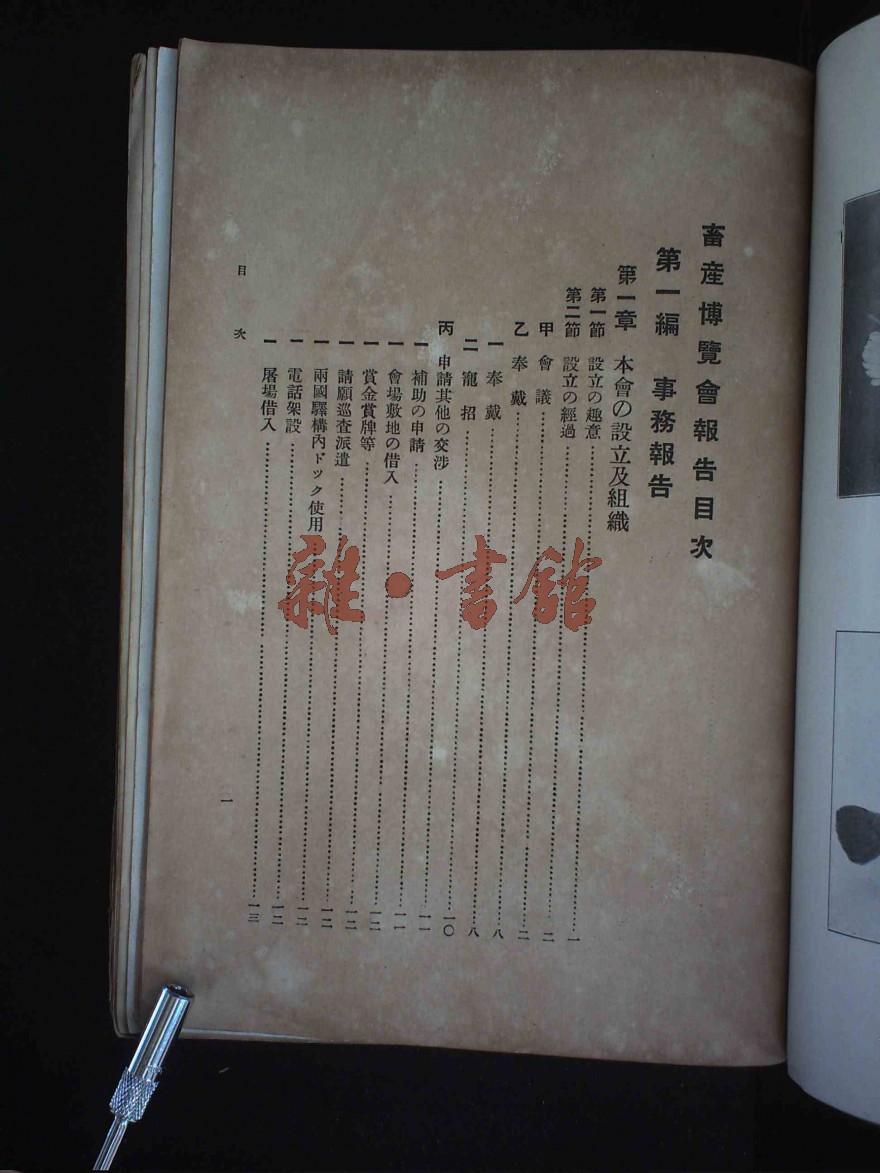 畜産博覽會報告目次
第一編 事務報告
第一章 本會の設立及組織
第一節 設立の趣意……一
第二節 設立の經過
甲 會議……二
乙 奉戴……二
一 奉戴……八
二 寵招……八
丙 申請其他の交渉……一〇
一 補助の申請……一一
一 會場敷地の借入……一一
一 賞金賞牌等……一二
一 請願巡査派遣……一二
一 兩國驛構內ドック使用……一二
一 電話架設……一二
一 屠場借入……一三
目次
一
雜・書館